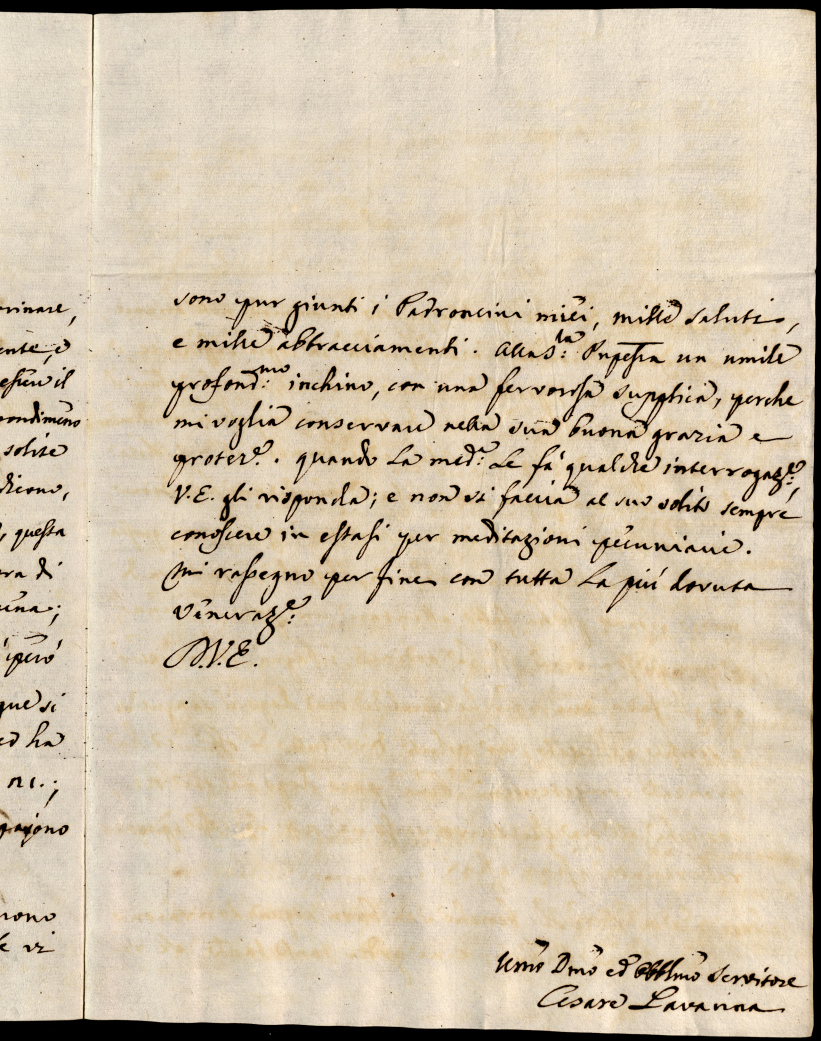 rinare,
ente, e
il
pondimeno
solite
dicono,
, questa
ra di
una;
però
que si
ed ha
ni.;
pajono
nono
e vi
sono pur giunti i Padroncini miei, mille saluti,
e mille abbracciamenti. Alla S.la un umile
profond.mo inchino, con una fervorosa supplica, perche
mi voglia conservare nella sua buona grazia e
protez.e. quando La med.a Le fà qualche interrogaz.e,
V.E. gli risponda; e non si faccia al suo solito sempre
conoscere in estasi per meditazioni pecuniarie.
Mi rassegno per fine con tutta La più dovuta
veneraz.e:
D.V.E.
Umo Dmo ed Obblmo Servitore
Cesare Lavanna